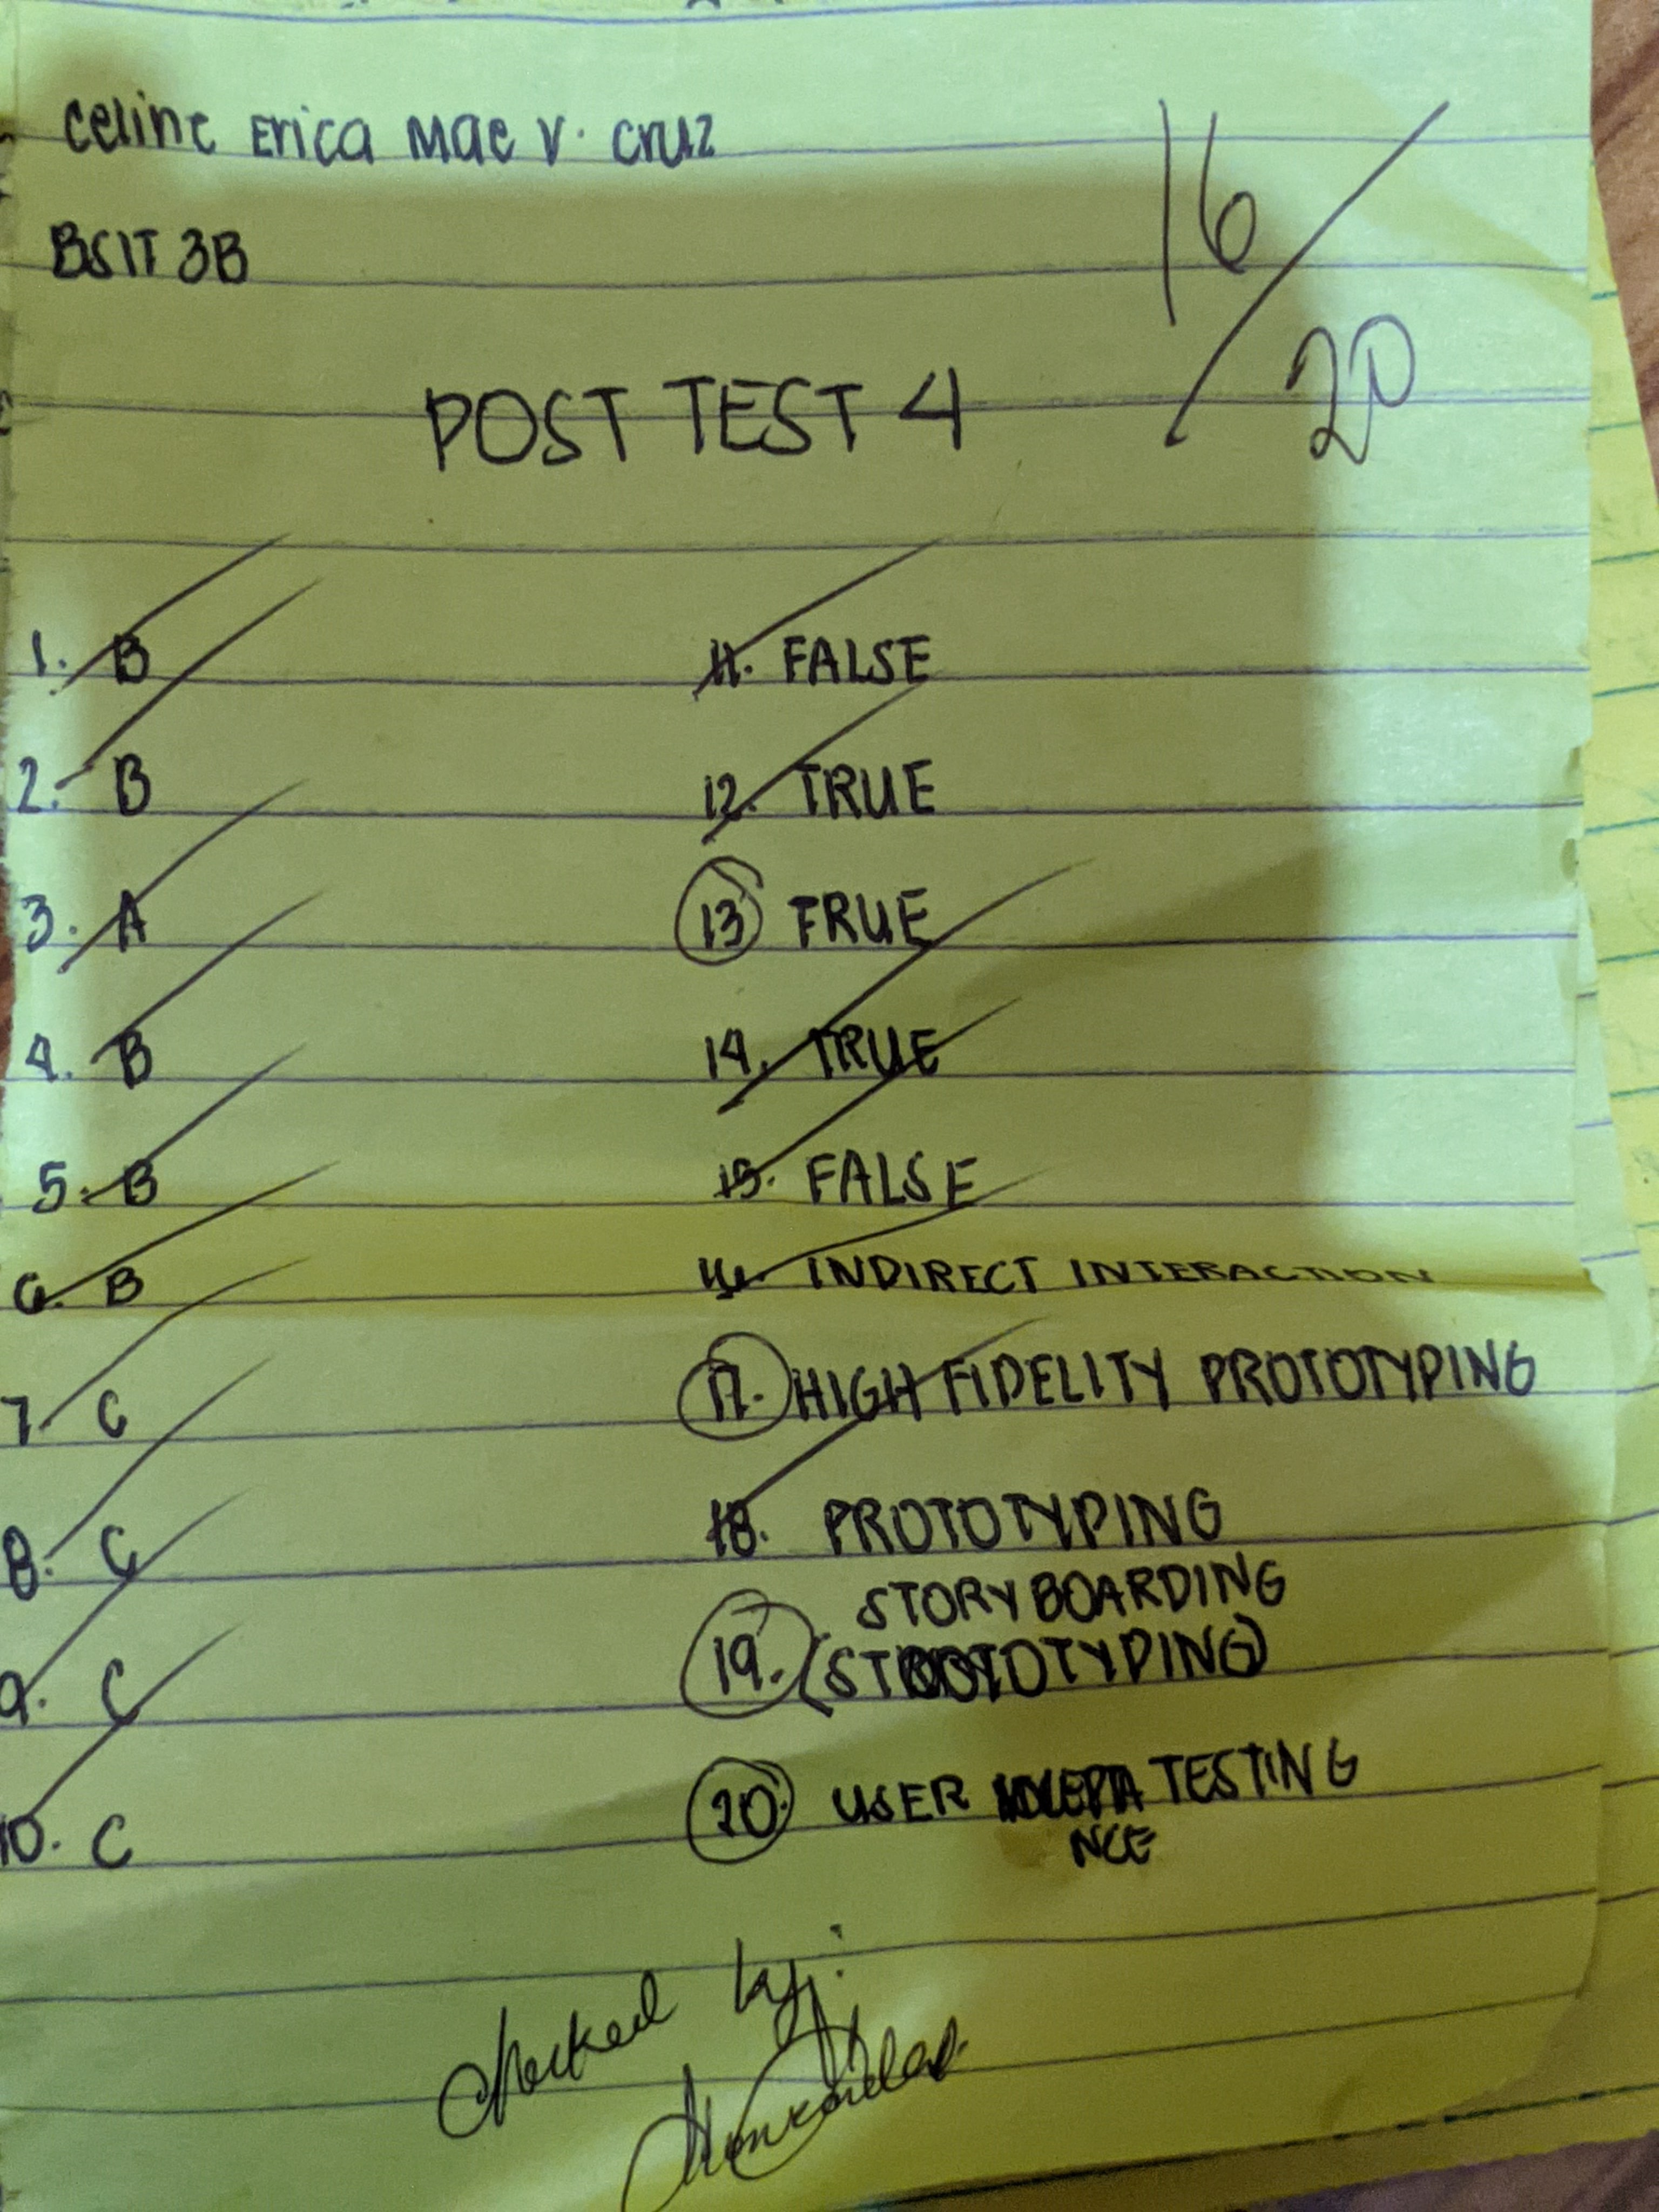 Celine Erica Mae V. Cruz
BSIT 3B
16/20
POST TEST 4
1. B
2. B
3. A
4. B
5. B
6. B
7. C
8. C
9. C
10. C
11. FALSE
12. TRUE
13 TRUE
14. TRUE
15. FALSE
16. INDIRECT INTERACTION
17. HIGH FIDELITY PROTOTYPING
18. PROTOTYPING
STORYBOARDING
19.
20. USER TESTING
NCE
Checked by: